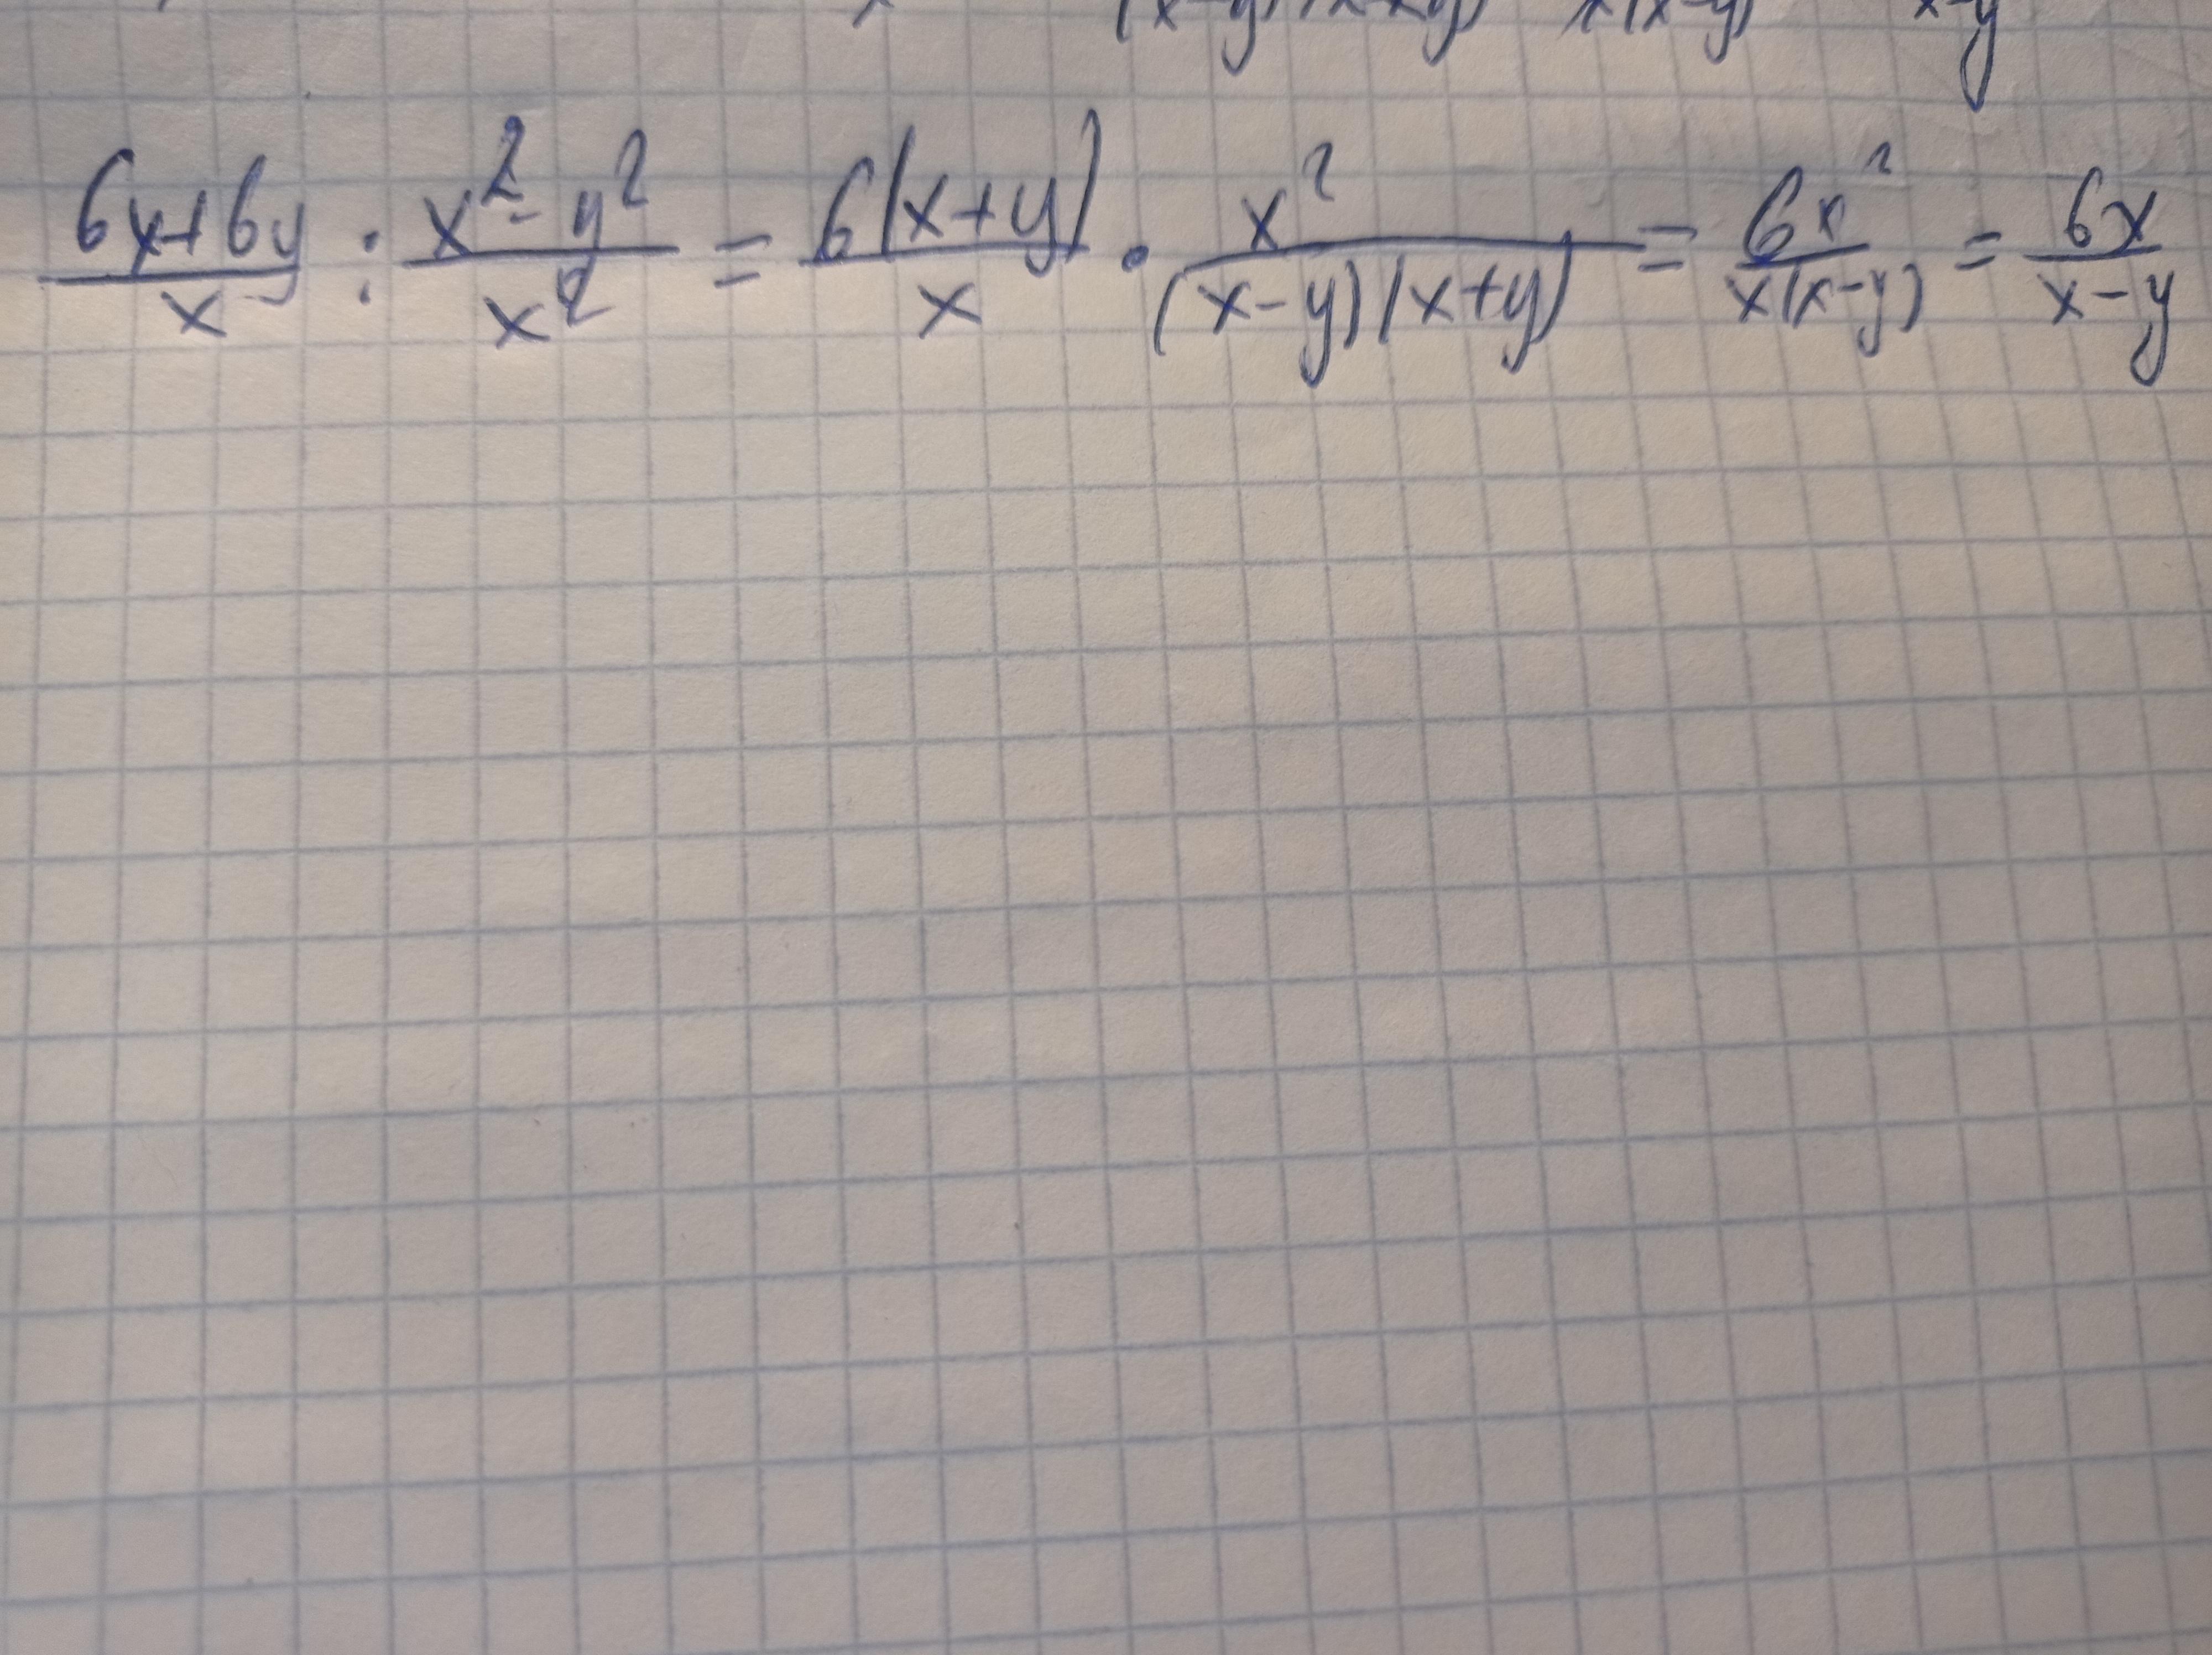 (x-y)(x+y) x(x-y) x-y
6x+6y/x : x²-y²/x² = 6(x+y)/x · x²/(x-y)(x+y) = 6x²/x(x-y) = 6x/x-y